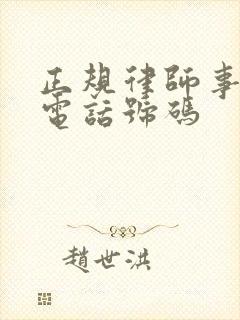 正規律師事
電話號碼
趙世洪